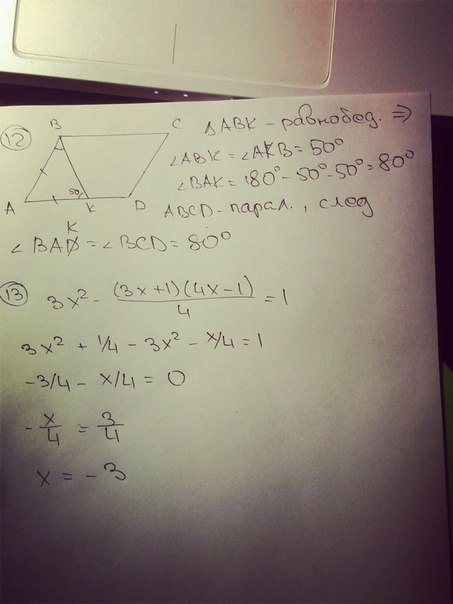 12
B C
A K D
50°
ΔABK - равнобед. ⇒
∠ABK = ∠AKB = 50°
∠BAK = 180° - 50° - 50° = 80°
ABCD - парал., след
∠BAK = ∠BCD = 80°
13
3x² - (3x+1)(4x-1)/4 = 1
3x² + 1/4 - 3x² - x/4 = 1
-3/4 - x/4 = 0
-x/4 = 3/4
x = -3